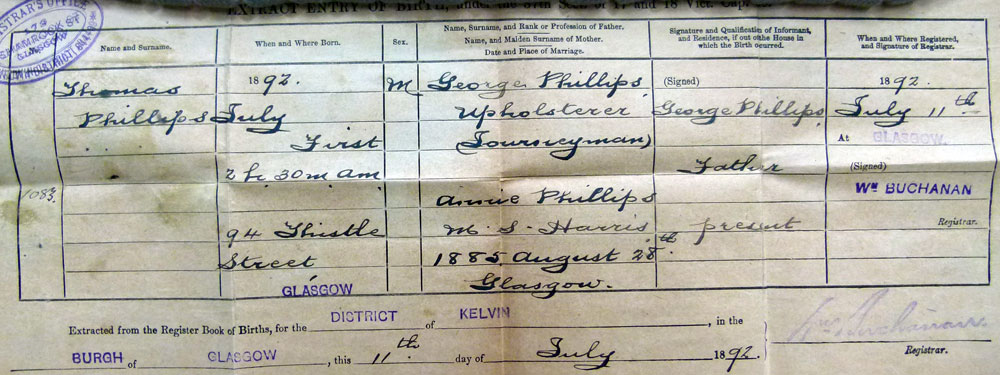 EXTRACT ENTRY OF BIRTH, under the
17 and 18 Vict. Cap.
REGISTRAR'S OFFICE
GLASGOW
Name and Surname.
When and Where Born.
Sex.
Name, Surname, and Rank or Profession of Father.
Name, and Maiden Surname of Mother.
Date and Place of Marriage.
Signature and Qualification of Informant,
and Residence, if out of the House in
which the Birth ocurred.
When and Where Registered,
and Signature of Registrar.
1083.
Thomas
Phillips
1892.
July
First
2 h. 30 m am
94 Thistle
Street
GLASGOW
M
George Phillips
Upholsterer
(Journeyman)
Annie Phillips
M. S. Harris
1885 August 28th
Glasgow.
(Signed)
George Phillips
Father
present
1892.
July 11th
At GLASGOW.
(Signed)
Wm BUCHANAN
Registrar.
Extracted from the Register Book of Births, for the DISTRICT of KELVIN, in the
BURGH of GLASGOW, this 11th day of July 1892.
Wm Buchanan
Registrar.